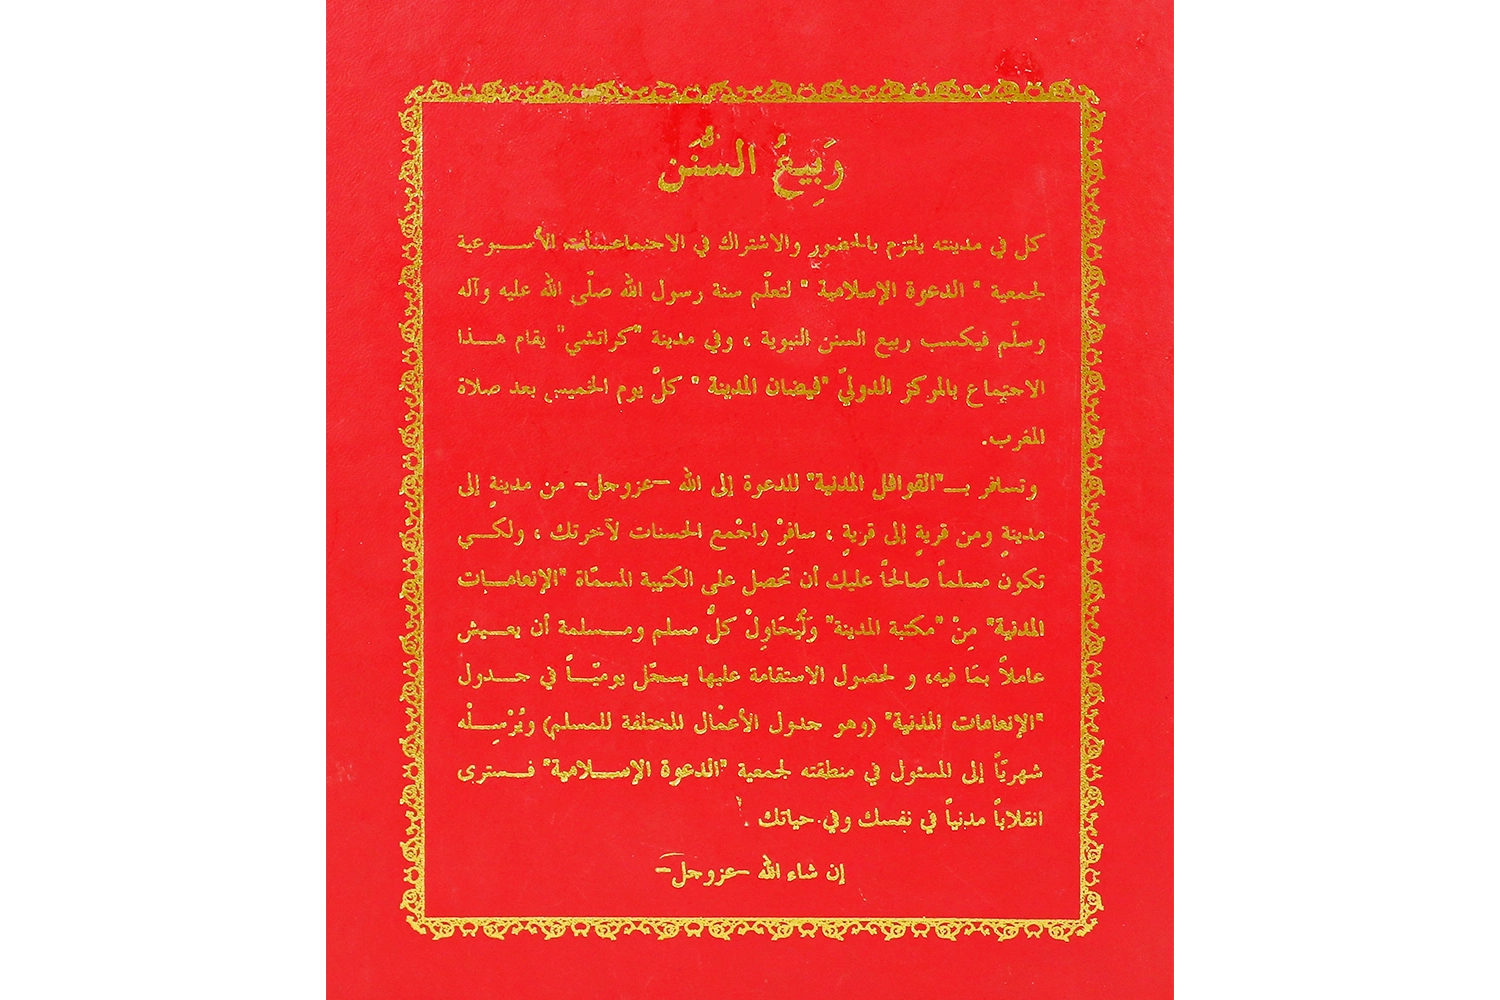 رَبِيعُ السُّنَن
كل في مدينته يلتزم بالحضور والاشتراك في الاجتماعات الأسبوعية
لجمعية " الدعوة الإسلامية " لتعلّم سنة رسول الله صلّى الله عليه وآله
وسلّم فيكسب ربيع السنن النبوية ، وفي مدينة "كراتشي" يقام هذا
الاجتماع بالمركز الدوليّ "فيضان المدينة " كلَّ يوم الخميس بعد صلاة
المغرب.
وتسافر بـ"القوافل المدنية" للدعوة إلى الله –عزوجل– من مدينةٍ إلى
مدينةٍ ومن قريةٍ إلى قريةٍ ، سافِرْ واجْمع الحسنات لآخرتك ، ولكي
تكون مسلماً صالحًا عليك أن تحصل على الكتيبة المسمّاة "الإنعامات
المدنية" مِنْ "مكتبة المدينة" وَلْيُحَاوِلْ كلُّ مسلم ومسلمة أن يعيش
عاملاً بمَا فيه، و لحصول الاستقامة عليها يسجّل يوميّاً في جدول
"الإنعامات المدنية" (وهو جدول الأعمْال المختلفة للمسلم) ويُرْسِلْه
شهريّاً إلى المسئول في منطقته لجمعية "الدعوة الإسلامية" فسترى
انقلاباً مدنياً في نفسك وفي حياتك .
إن شاء الله –عزوجلّ–